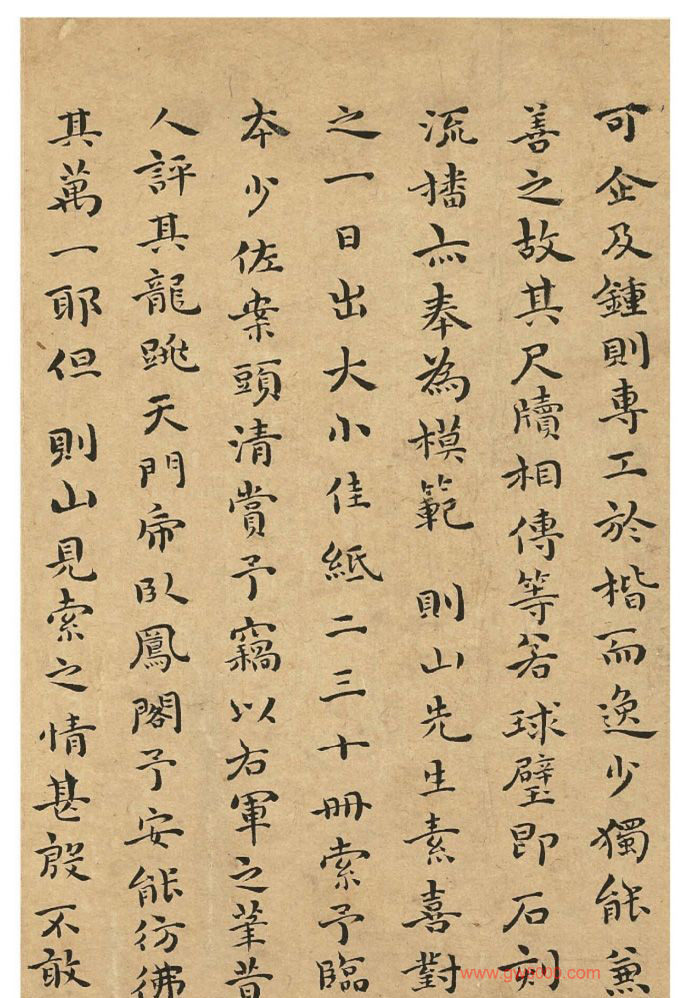 可企及鍾則專工於楷而逸少獨能兼
善之故其尺牘相傳等若球璧即石刻
流播亦奉為模範 則山先生素喜對
之一日出大小佳紙二三十冊索予臨
本少佐案頭清賞予竊以右軍之筆昔
人評其龍跳天門帝臥鳳閣予安能彷彿
其萬一耶但 則山見索之情甚殷不敢